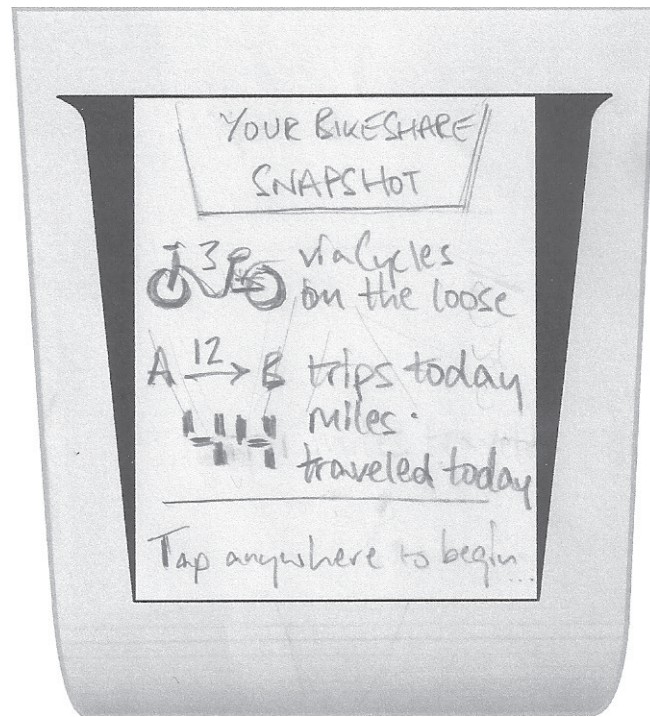 YOUR BIKESHARE
SNAPSHOT
3 viaCycles
on the loose
12
A → B trips today
44 miles
traveled today
Tap anywhere to begin...